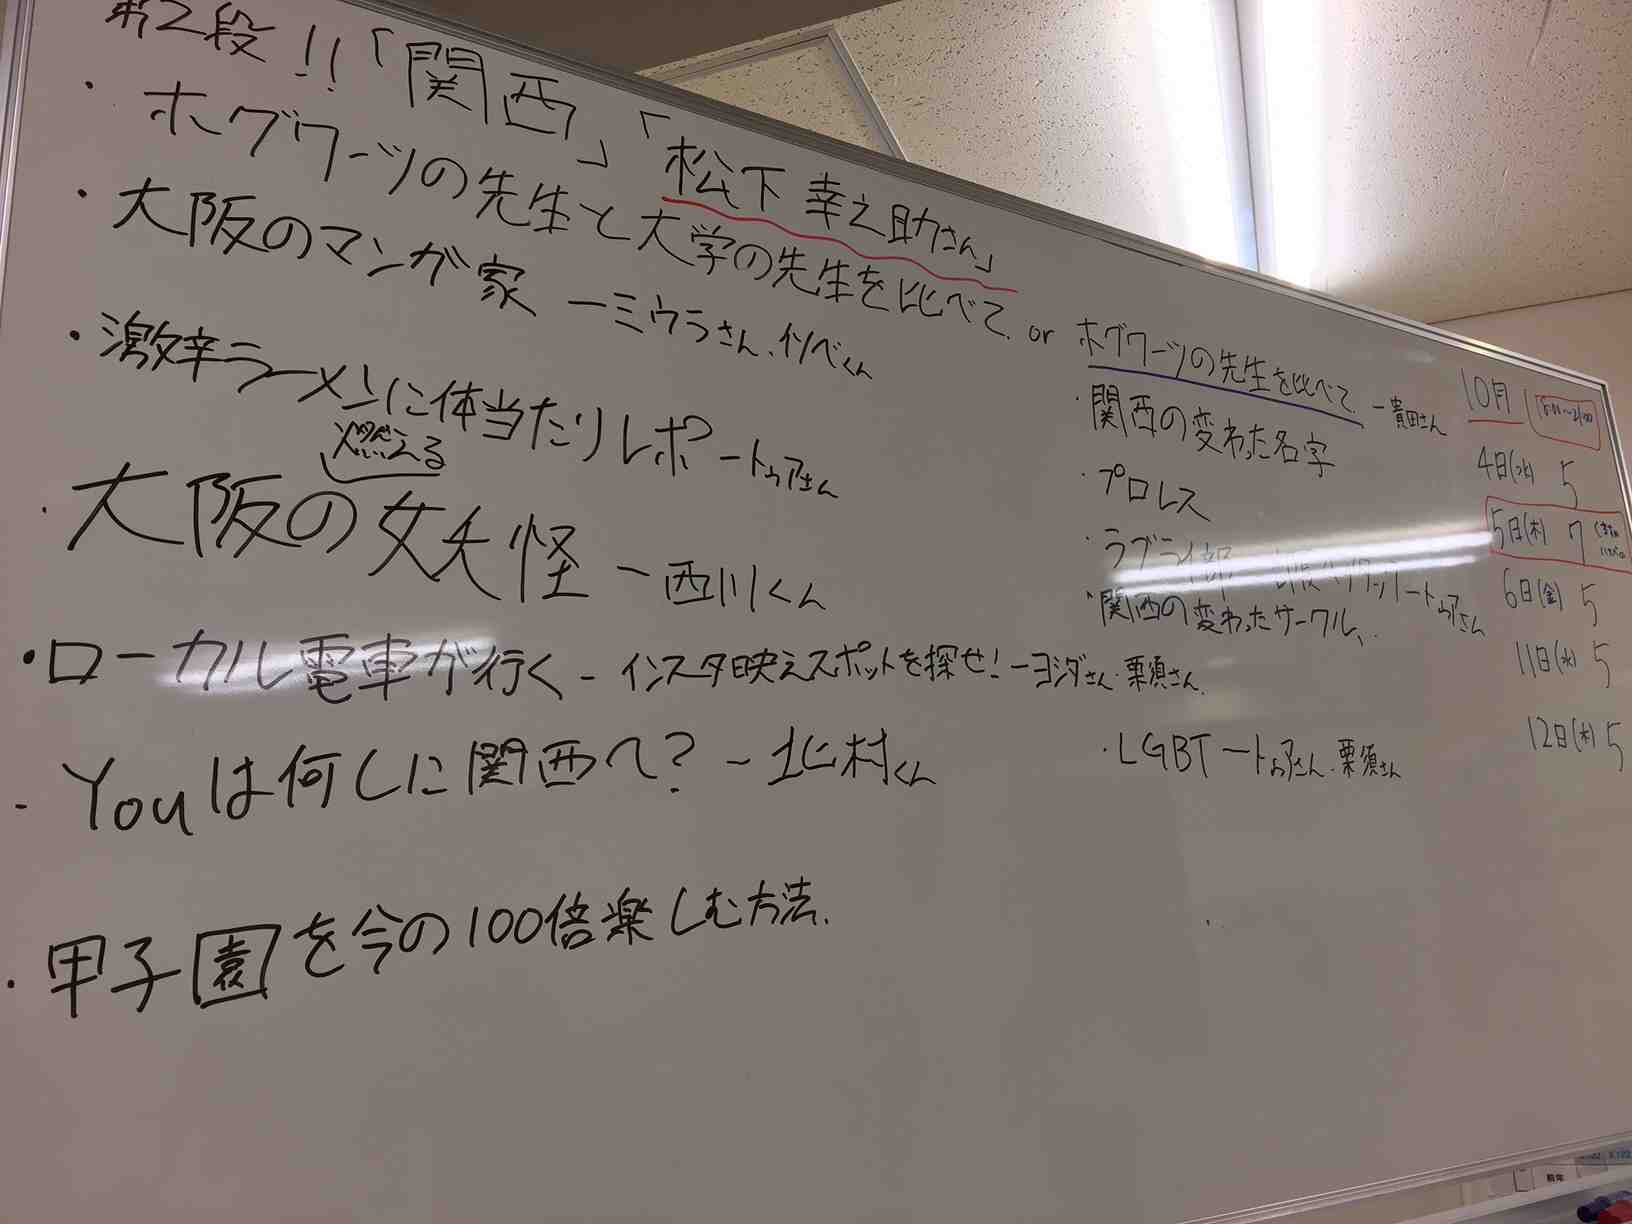 第2段!!「関西」「松下幸之助さん」
・ホグワーツの先生と大学の先生を比べて or ホグワーツの先生を比べて ー貴田さん
・大阪のマンガ家 ーミウラさん、イソベくん
・激辛ラーメンに体当たりレポートゥアさん
燃える
・大阪の妖怪 ー西川くん
・ローカル電車が行く - インスタ映えスポットを探せ!ーヨシダさん・栗須さん
・Youは何しに関西へ? ー北村くん
・甲子園を今の100倍楽しむ方法
・関西の変わった名字
・プロレス
・ラブライ部
ートゥアさん
・関西の変わったサークル
・LGBT ートゥアさん・栗須さん
10月
4日(水) 5
5日(木) 7
6日(金) 5
11日(水) 5
12日(木) 5